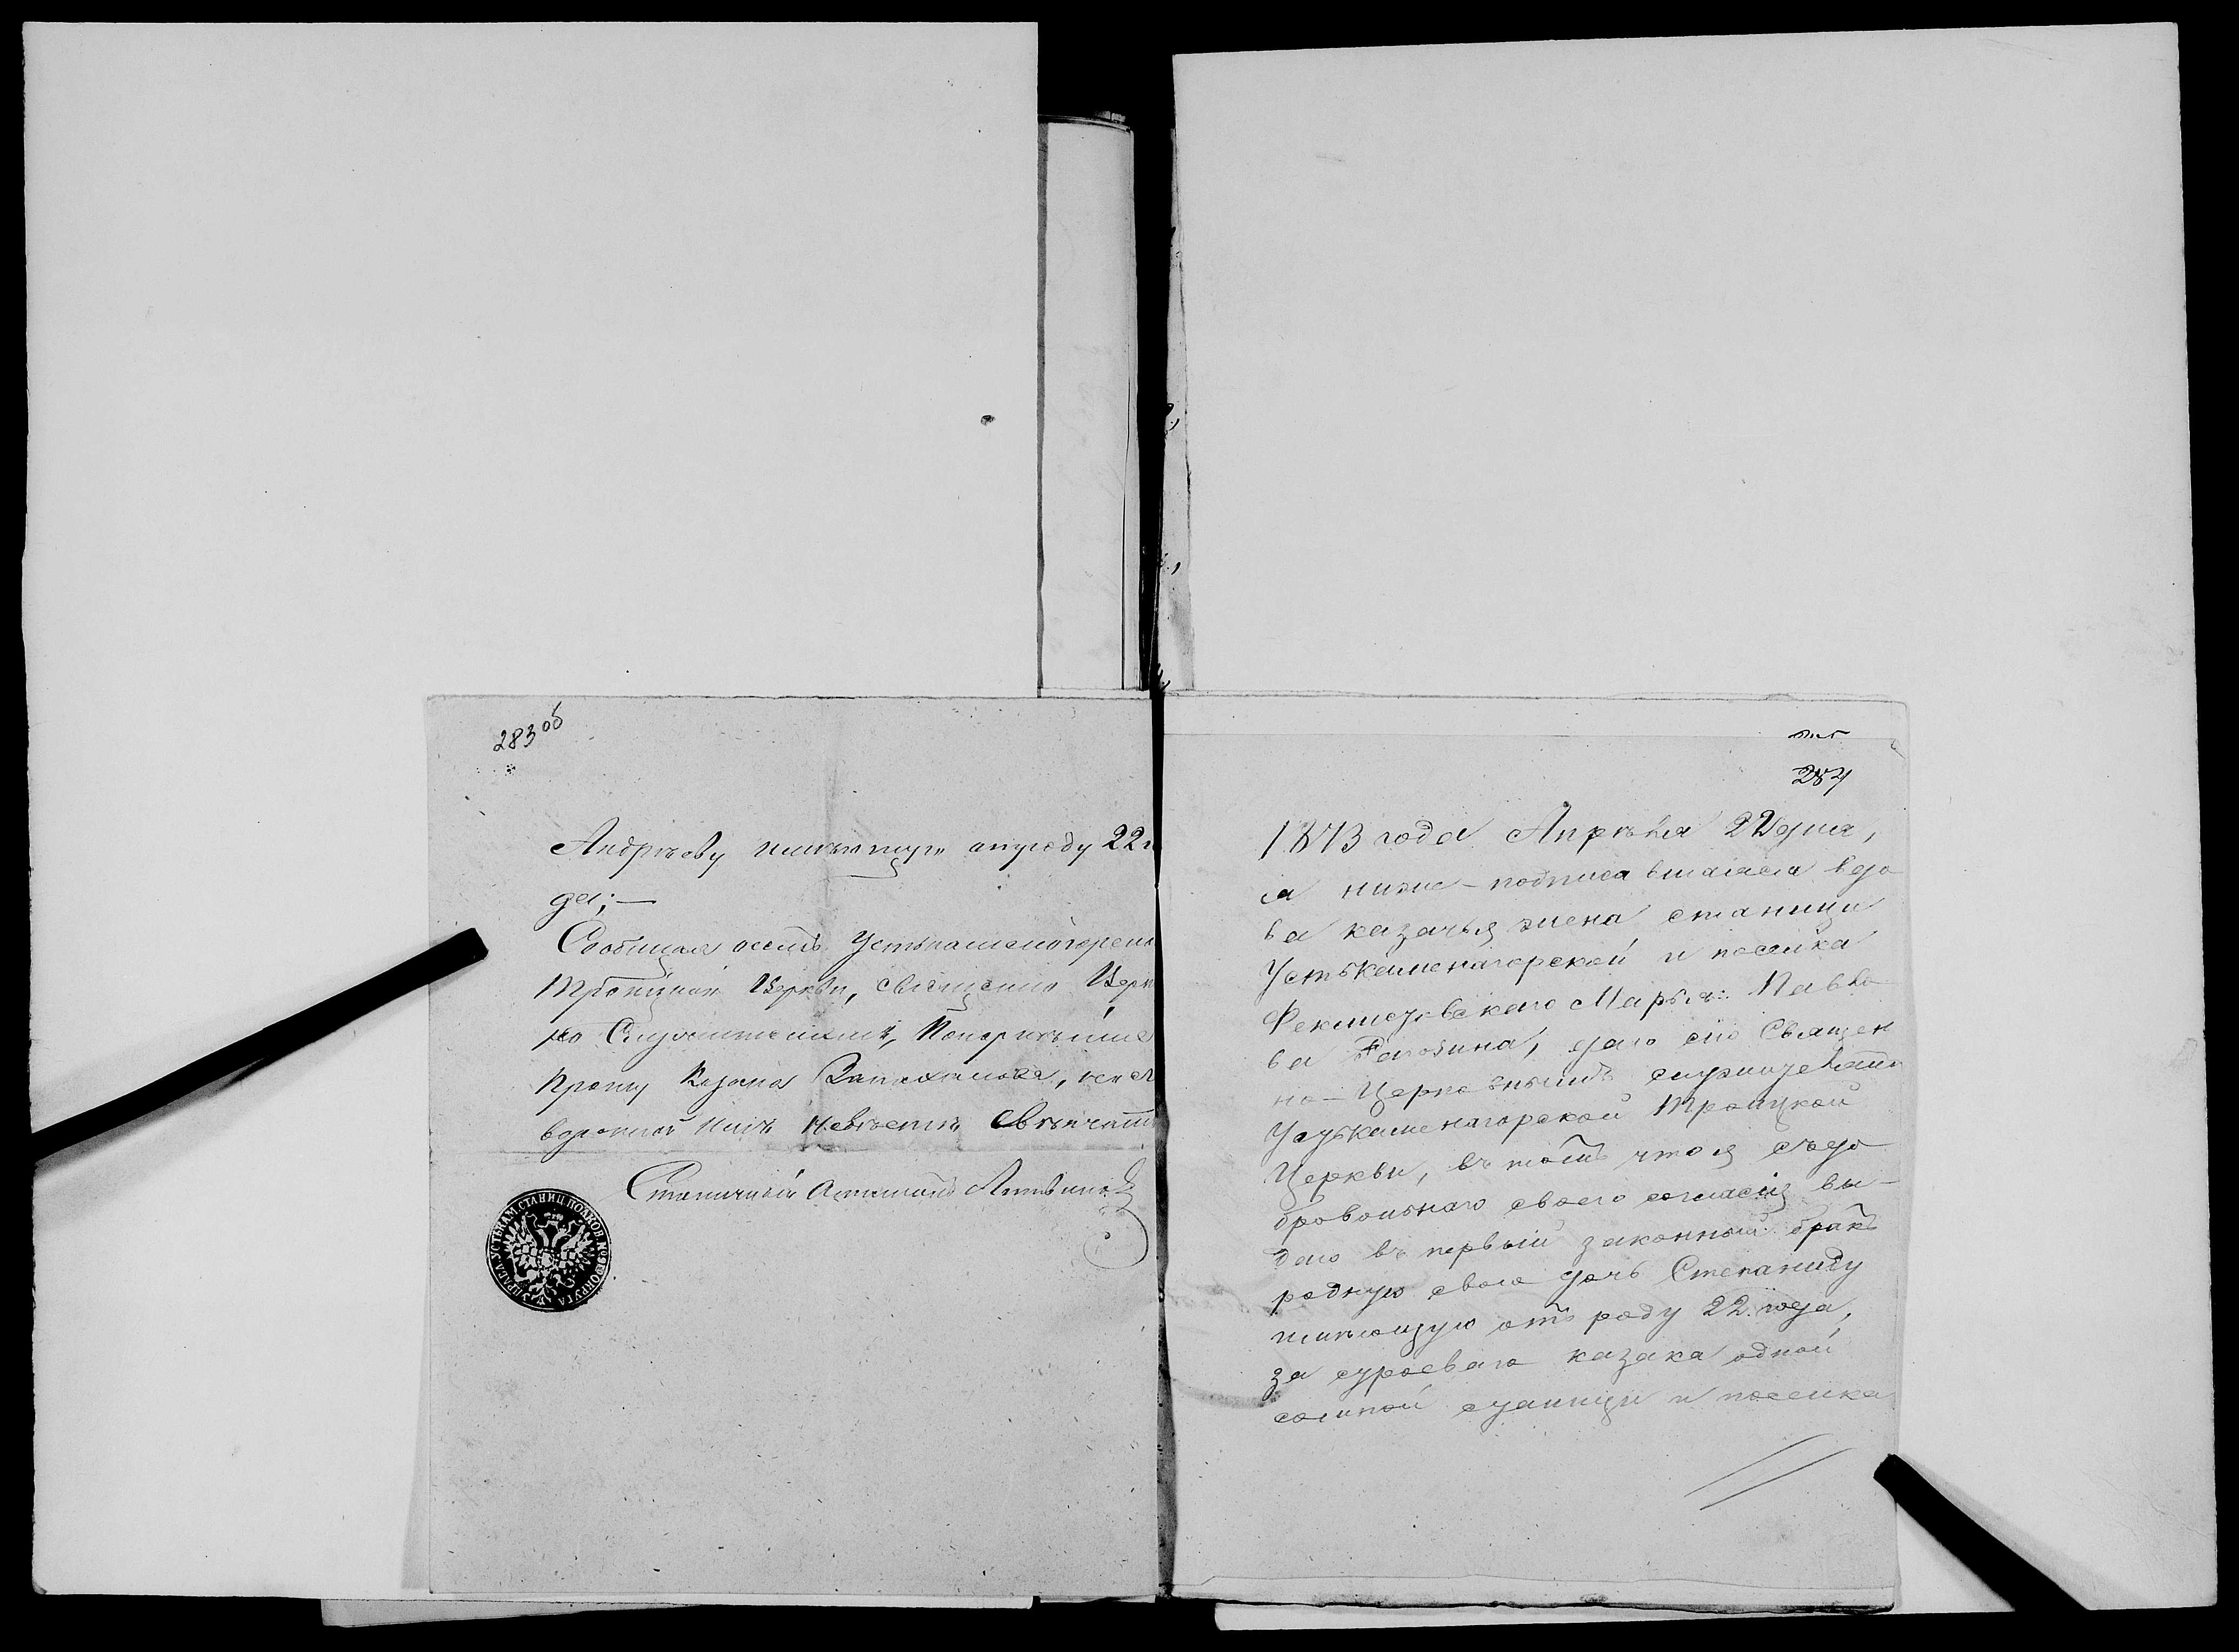 283 об
Андрѣеву имѣющую отъ роду 22 г
да;—
Сообщая о семъ Устькаменогорско
Троицкой Церкви, священно Церк
но Служителямъ, Покорнѣйше
прошу Казака
невѣстѣ Свѣнчать
Станичный Атаманъ Литвинов
УПРАВА УСТЬКАМ. СТАНИЦ. ПОЛКОВ. ОКРУГА
284
1873 года Апрѣля 22 дня,
я ниже-подписавшаяся вдо
ва казачья жена станицы
Устькаменагорской и поселка
Феклистовскаго Марья Павло
ва даю сію Священ
но-Церковнымъ служителямъ
Устькаменагорской Троицкой
Церкви, въ томъ что я съ до
бровольнаго своего согласія вы-
даю въ первый законный бракъ
родную свою дочь Степаниду
имѣющую отъ роду 22 года,
за казака одной
со мной станицы и поселка